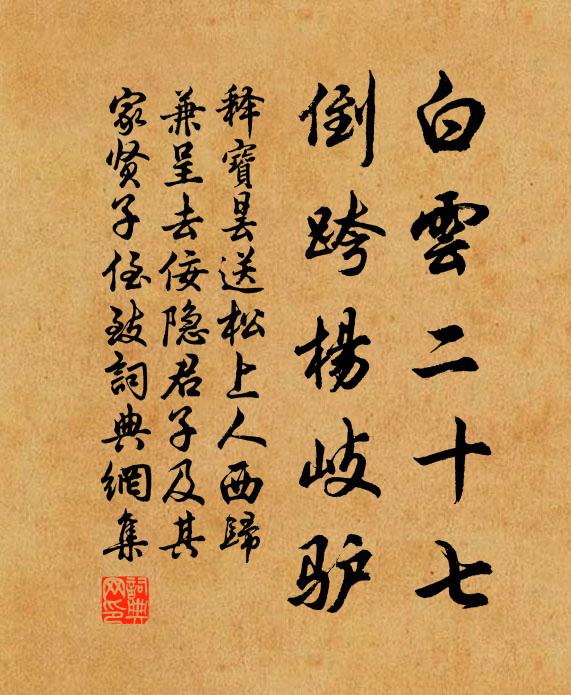 白雲二十七
倒跨楊岐驴
释寶曇送松上人西歸
兼呈去佞隐君子及其
家贤子侄致詞典網集
詞典
网印